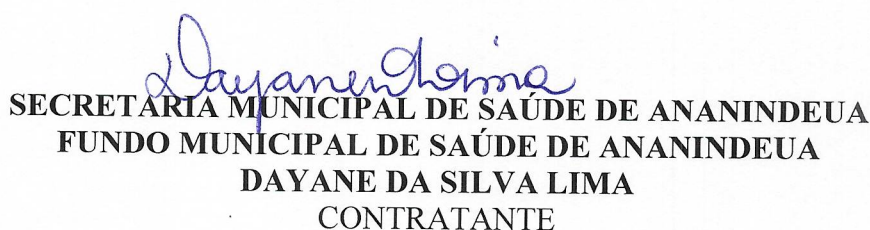 Dayane Lima
SECRETARIA MUNICIPAL DE SAÚDE DE ANANINDEUA
FUNDO MUNICIPAL DE SAÚDE DE ANANINDEUA
DAYANE DA SILVA LIMA
CONTRATANTE